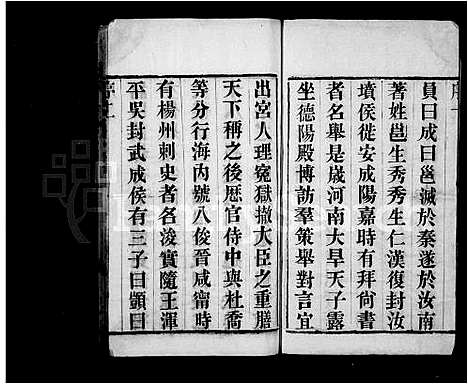 員曰成曰邕滅於秦遂於汝南
著姓邕生秀秀生仁漢復封汝
墳侯徙安成陽嘉時有拜尙書
者名舉是歲河南大旱天子露
坐德陽殿博訪羣策舉對言宜
出宮人理寃獄撤大臣之重膳
天下稱之後歷官侍中與杜喬
等分行海內號八俊晉咸甯時
有楊州刺史者名浚實隨王渾
平吳封武成侯有三子曰顗曰